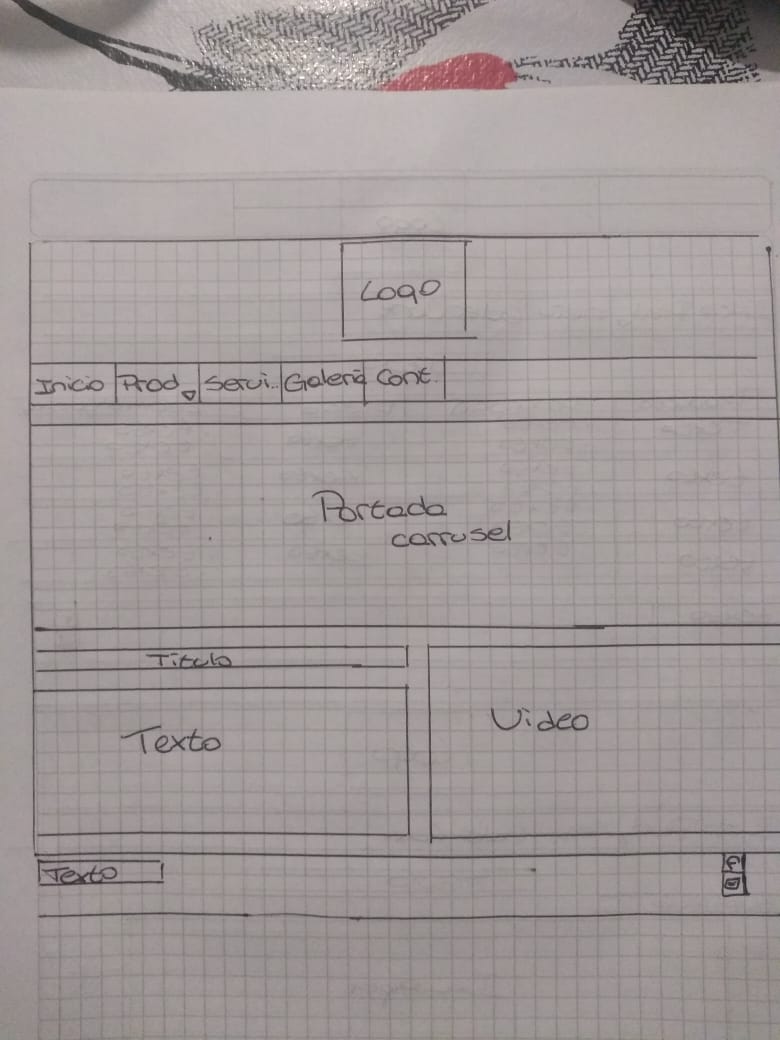 Logo
Inicio Prod. Servi.. Galeria Cont.
Portada
carrusel
Titulo
Texto
Video
Texto
f